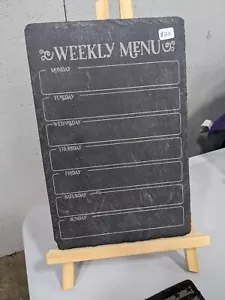 WEEKLY MENU
MONDAY
TUESDAY
WEDNESDAY
THURSDAY
FRIDAY
SATURDAY
SUNDAY